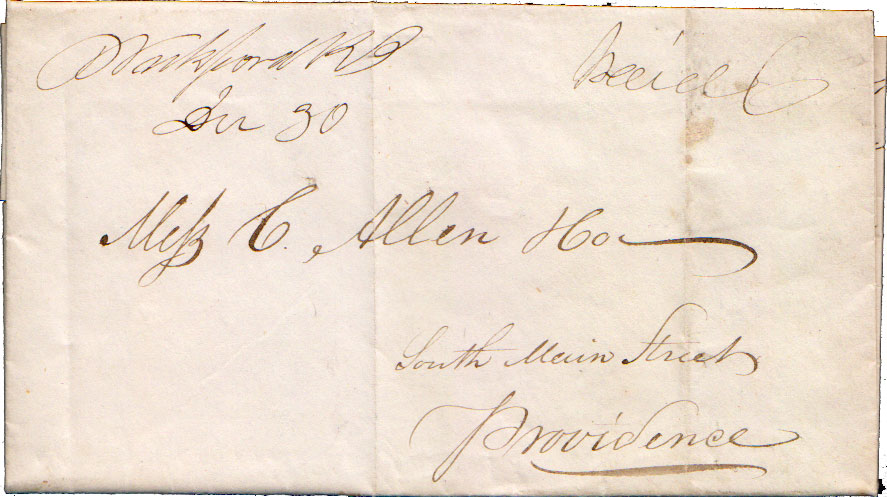 Wickford RI
Paid 6
30
Mess C. Allen & Co
South Main Street
Providence